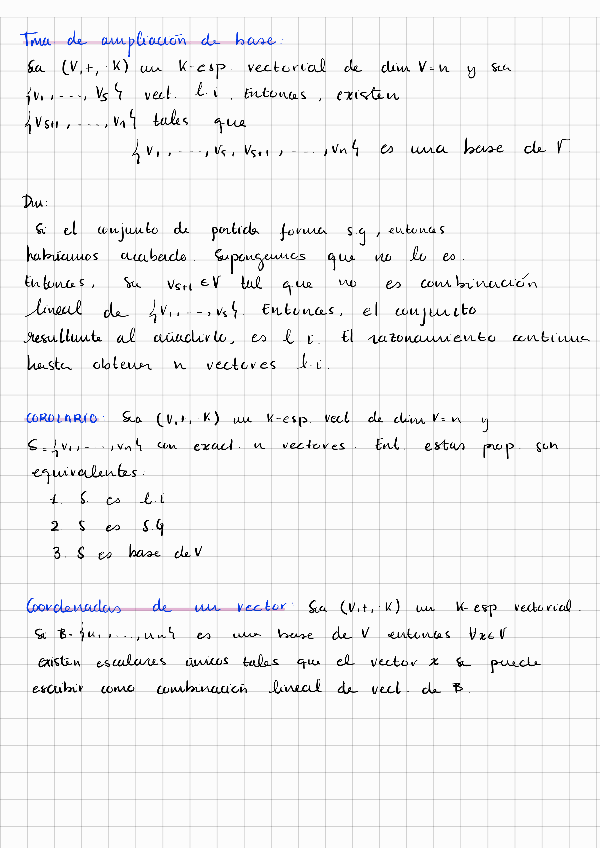 Tma de ampliación de base:
Sea (V,+,·K) un K-esp. vectorial de dim V=n y sea
{v1,...,vs} vect. l.i. Entonces, existen
{vs+1,...,vn} tales que
{v1,...,vs,vs+1,...,vn} es una base de V
Dm:
Si el conjunto de partida forma s.g, entonces
habríamos acabado. Supongamos que no lo es.
Entonces, sea vs+1 ∈ V tal que no es combinación
lineal de {v1,...,vs}. Entonces, el conjunto
resultante al añadirlo, es l.i. El razonamiento continua
hasta obtener n vectores l.i.
COROLARIO: Sea (V,+,·K) un K-esp. vect de dim V=n y
S={v1,...,vn} con exact. n vectores. Ent. estas prop. son
equivalentes:
1. S es l.i
2 S es S.G
3. S es base de V
Coordenadas de un vector: Sea (V,+,·K) un K-esp vectorial.
Si B={u1,...,un} es una base de V entonces ∀x∈V
existen escalares únicos tales que el vector x se puede
escribir como combinación lineal de vect. de B.